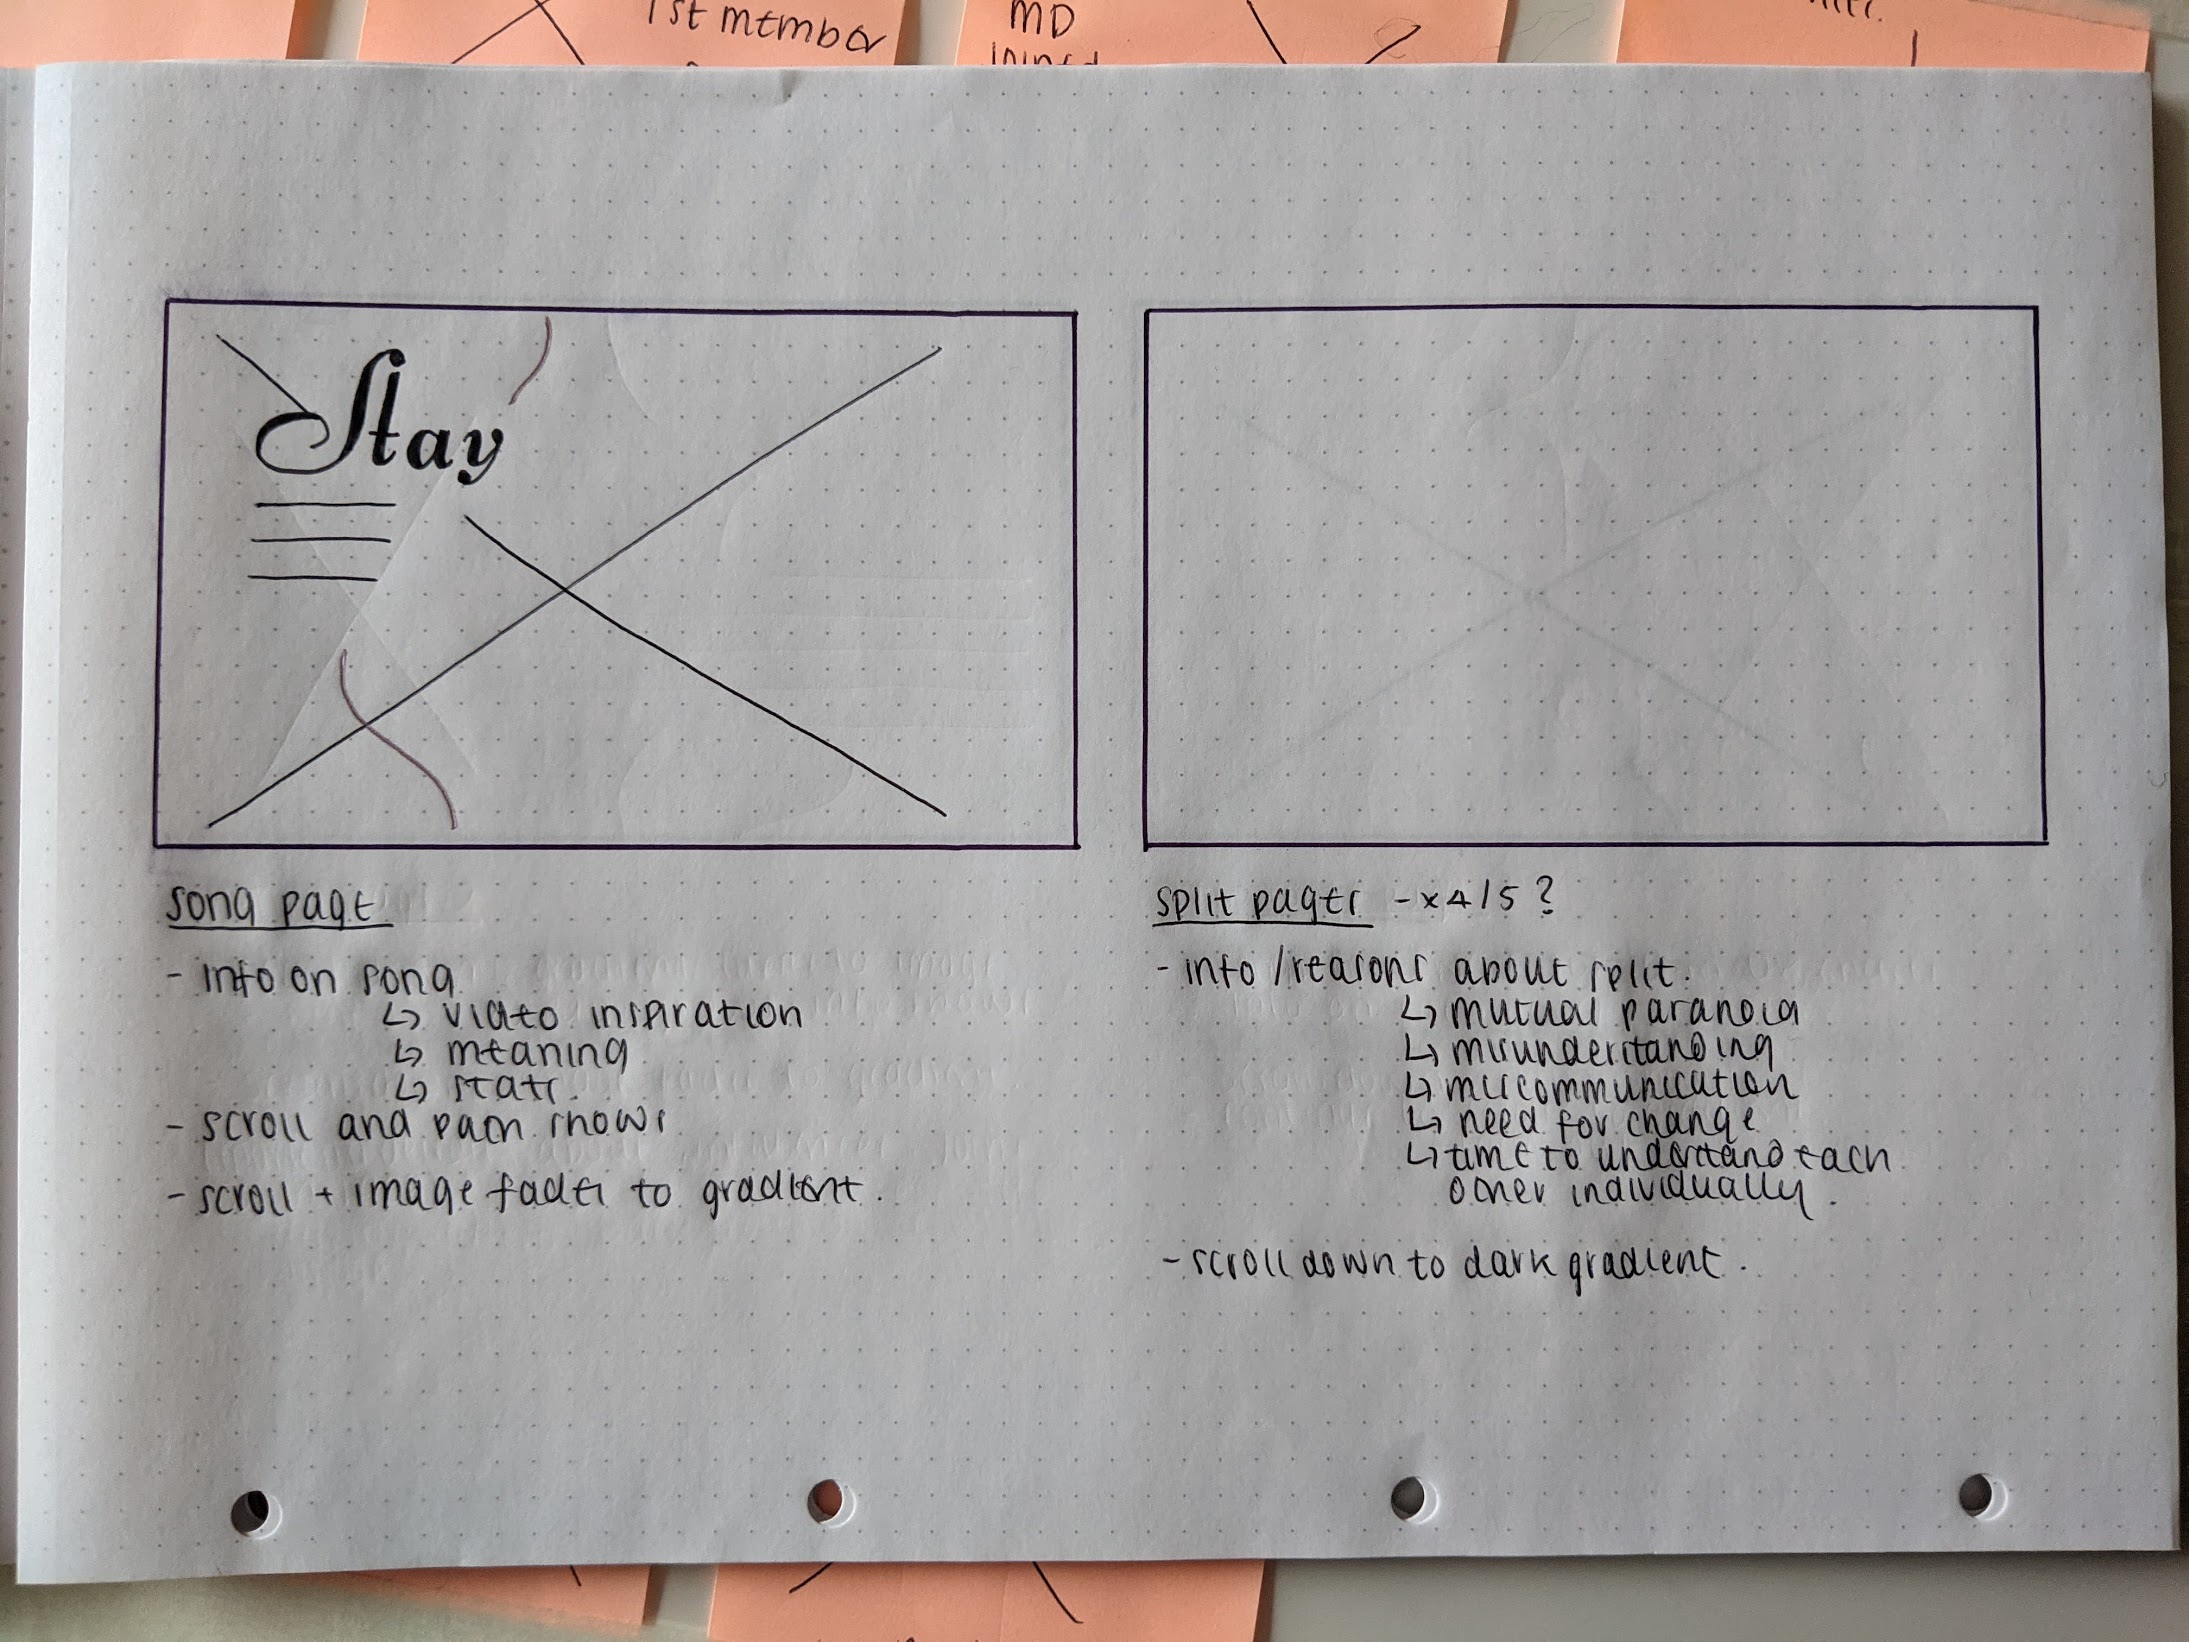 1st member
MD
joined
Stay
song page
- info on song
↳ video inspiration
↳ meaning
↳ stats.
- scroll and path shows
- scroll + image fades to gradient.
split pages - x4/5?
- info/reasons about split.
↳ mutual paranoia
↳ misunderstanding
↳ miscommunication
↳ need for change
↳ time to understand each
other individually.
- scroll down to dark gradient.